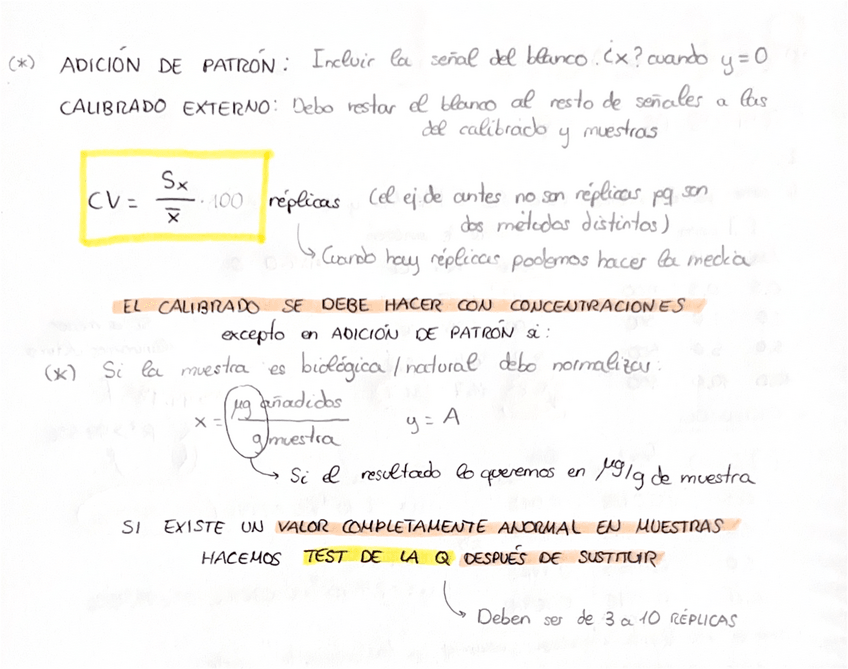 (*) ADICIÓN DE PATRÓN: Incluir la señal del blanco. ¿x? cuando y=0
CALIBRADO EXTERNO: Debo restar el blanco al resto de señales a las
del calibrado y muestras
CV = Sx / x̄ · 100 réplicas (el ej. de antes no son réplicas pq son
dos métodos distintos)
↳ Cuando hay réplicas podemos hacer la media
EL CALIBRADO SE DEBE HACER CON CONCENTRACIONES
excepto en ADICIÓN DE PATRÓN si:
(*) Si la muestra es biológica/natural debo normalizar:
x = μg añadidos / g muestra y = A
→ Si el resultado lo queremos en μg/g de muestra
SI EXISTE UN VALOR COMPLETAMENTE ANORMAL EN MUESTRAS
HACEMOS TEST DE LA Q DESPUÉS DE SUSTITUIR
↳ Deben ser de 3 a 10 RÉPLICAS